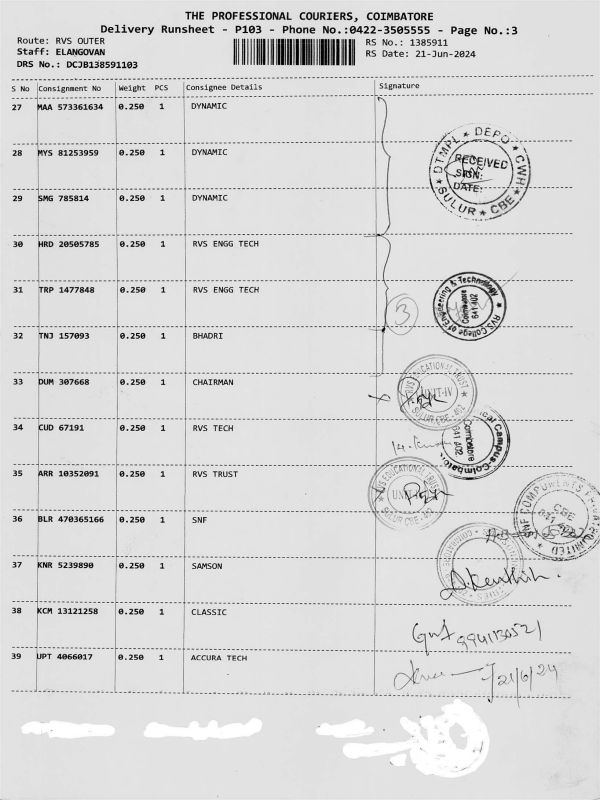 THE PROFESSIONAL COURIERS, COIMBATORE
Delivery Runsheet - P103 - Phone No.:0422-3505555 - Page No.:3
Route: RVS OUTER
RS No.: 1385911
Staff: ELANGOVAN
RS Date: 21-Jun-2024
DRS No.: DCJB138591103
S No Consignment No Weight PCS Consignee Details Signature
27 MAA 573361634 0.250 1 DYNAMIC
28 MYS 81253959 0.250 1 DYNAMIC
DTMPL ★ DEPO ★ CWH ★ SULUR ★ CBE ★
RECEIVED
SIGN:
DATE:
29 SMG 785814 0.250 1 DYNAMIC
30 HRD 20505785 0.250 1 RVS ENGG TECH
31 TRP 1477848 0.250 1 RVS ENGG TECH
3
★ RVS College of Engineering & Technology
Coimbatore
641 402
32 TNJ 157093 0.250 1 BHADRI
33 DUM 307668 0.250 1 CHAIRMAN
RVS EDUCATIONAL TRUST ★ SULUR CBE-402
UNIT-IV
34 CUD 67191 0.250 1 RVS TECH
Campus-Coimbatore
Coimbatore
641 402
35 ARR 10352091 0.250 1 RVS TRUST
RVS EDUCATIONAL TRUST SULUR CBE-402
36 BLR 470365166 0.250 1 SNF
SNF COMPONENTS PRIVATE LIMITED
CBE
641 402
37 KNR 5239890 0.250 1 SAMSON
38 KCM 13121258 0.250 1 CLASSIC
39 UPT 4066017 0.250 1 ACCURA TECH
21/6/24